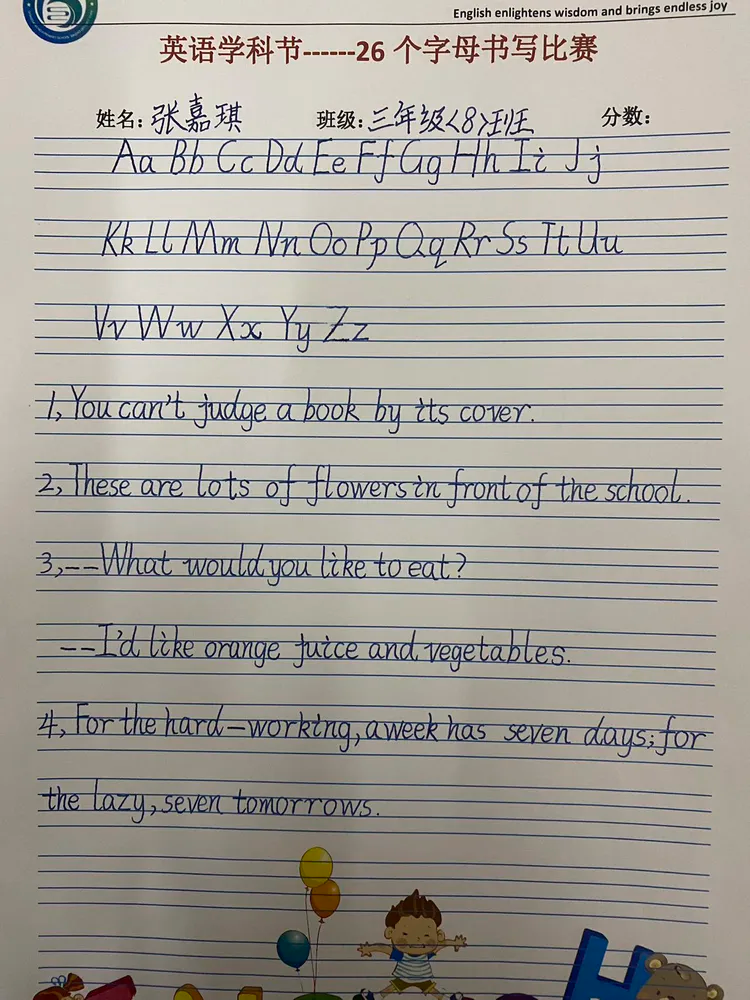 English enlightens wisdom and brings endless joy
英语学科节------26 个字母书写比赛
姓名: 张嘉琪 班级: 三年级<8>班班 分数:
Aa Bb Cc Dd Ee Ff Gg Hh Ii Jj
Kk Ll Mm Nn Oo Pp Qq Rr Ss Tt Uu
Vv Ww Xx Yy Zz
1, You can't judge a book by its cover.
2, These are lots of flowers in front of the school.
3, --What would you like to eat?
--I'd like orange juice and vegetables.
4, For the hard-working, a week has seven days; for
the lazy, seven tomorrows.
H